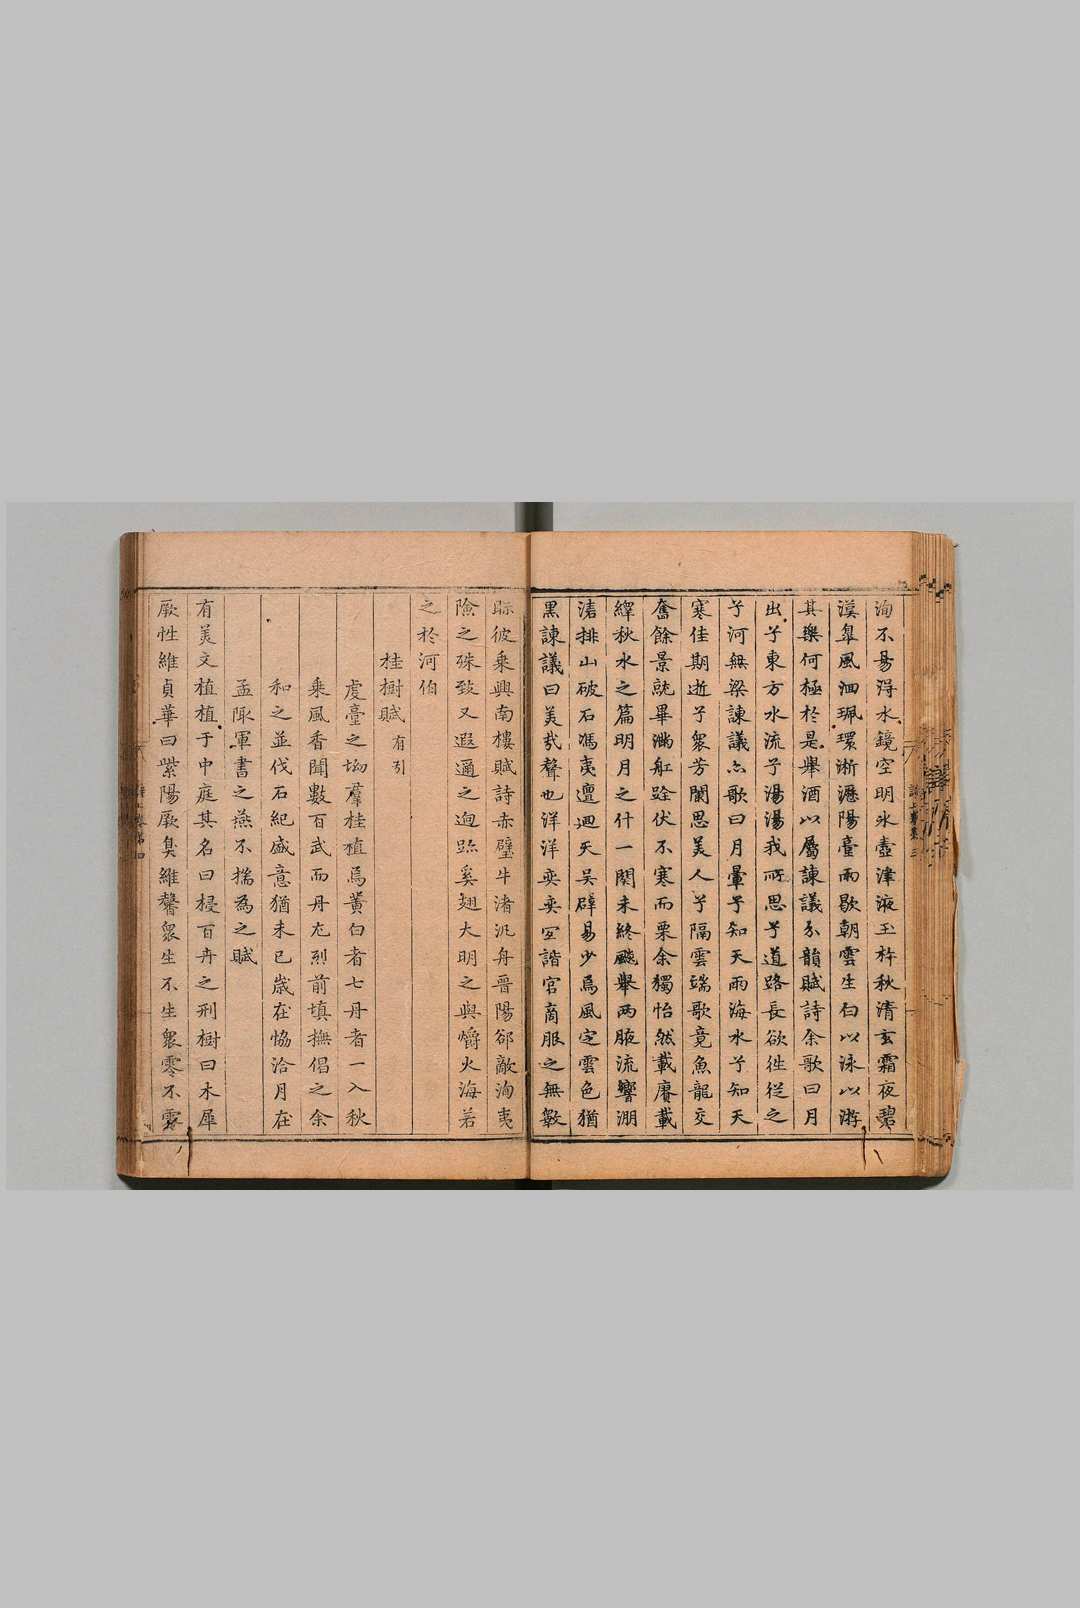 洵不易得水鏡空明氷壺津液玉杵秋清玄霜夜碧
漢皐風洄珮環淅瀝陽臺雨歇朝雲生白以泳以游
其樂何極於是舉酒以屬諫議分韻賦詩余歌曰月
出兮東方水流兮湯湯我所思兮道路長欲徃從之
兮河無梁諫議亦歌曰月暈兮知天雨海水兮知天
寒佳期逝兮衆芳闌思美人兮隔雲端歌竟魚龍交
奮餘景就畢滿舡跧伏不寒而栗余獨怡然載賡載
繹秋水之篇明月之什一闋未終飃舉兩腋流響淜
濤排山破石馮夷邅迴天吳辟易少焉風定雲色猶
黑諫議曰美哉聲也洋洋奕奕宜諧宮商服之無斁
眎彼乘興南樓賦詩赤壁牛渚汎舟晉陽郤敵洵夷
險之殊致又遐邇之逈跡奚翅大明之與爝火海若
之於河伯
桂樹賦 有引
虔臺之坳羣桂植焉黃白者七丹者一入秋
乘風香聞數百武而丹尤烈前塡撫倡之余
和之並伐石紀盛意猶未已歲在協洽月在
孟陬軍書之燕不揣為之賦
有美文植植于中庭其名曰梫百卉之刑樹曰木犀
厥性維貞華曰紫陽厥臭維馨衆生不生衆零不零